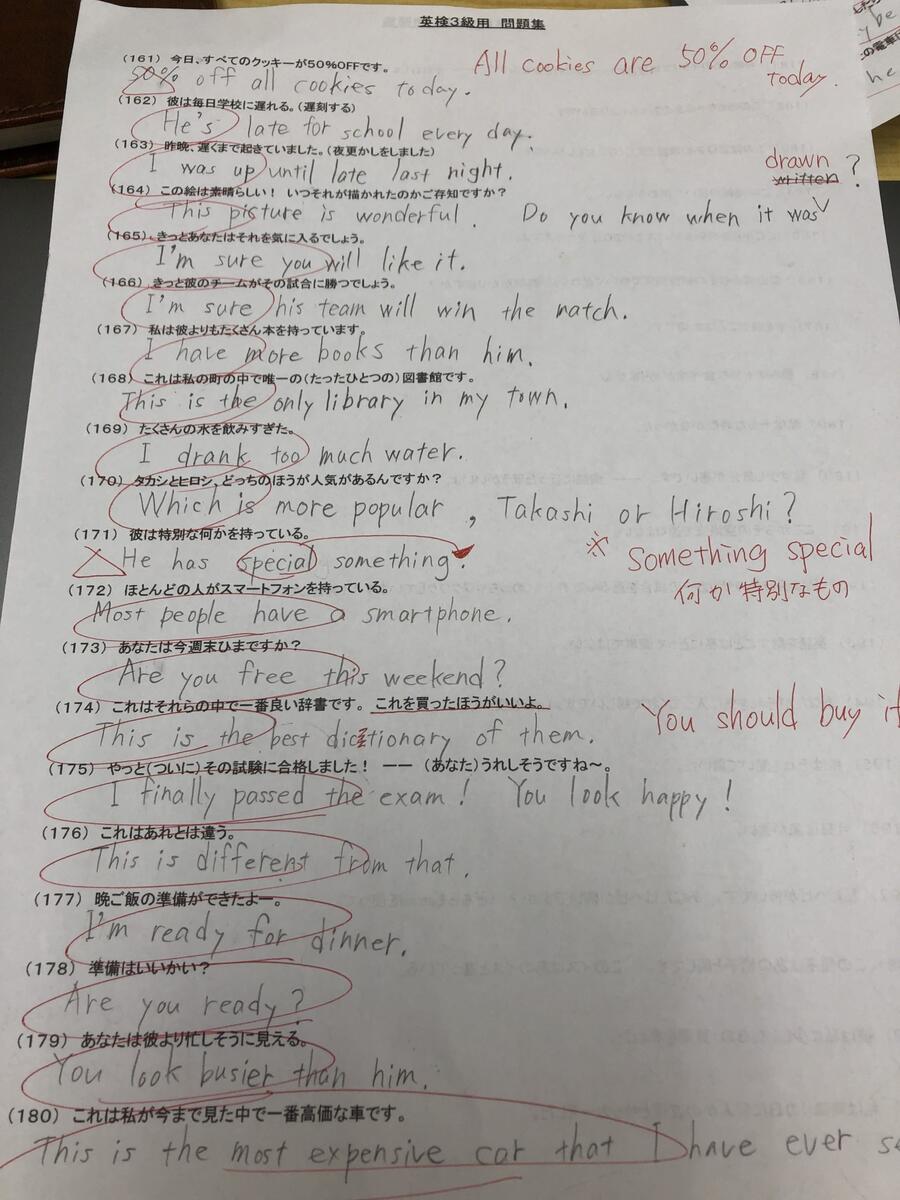 英検３級用 問題集
(161) 今日、すべてのクッキーが50%OFFです。
All cookies are 50% OFF today.
50% off all cookies today.
(162) 彼は毎日学校に遅れる。(遅刻する)
He's late for school every day.
(163) 昨晩、遅くまで起きていました。(夜更かしをしました)
I was up until late last night.
(164) この絵は素晴らしい！ いつそれが描かれたのかご存知ですか？
drawn
written ?
This picture is wonderful. Do you know when it was
(165) きっとあなたはそれを気に入るでしょう。
I'm sure you will like it.
(166) きっと彼のチームがその試合に勝つでしょう。
I'm sure his team will win the match.
(167) 私は彼よりもたくさん本を持っています。
I have more books than him.
(168) これは私の町の中で唯一の(たったひとつの)図書館です。
This is the only library in my town.
(169) たくさんの水を飲みすぎた。
I drank too much water.
(170) タカシとヒロシ、どっちのほうが人気があるんですか？
Which is more popular, Takashi or Hiroshi?
(171) 彼は特別な何かを持っている。
He has special something.
※ something special
何か特別なもの
(172) ほとんどの人がスマートフォンを持っている。
Most people have a smartphone.
(173) あなたは今週末ひまですか？
Are you free this weekend?
(174) これはそれらの中で一番良い辞書です。 これを買ったほうがいいよ。
This is the best dictionary of them. You should buy it
(175) やっと(ついに)その試験に合格しました！ ―― (あなた)うれしそうですね～。
I finally passed the exam! You look happy!
(176) これはあれとは違う。
This is different from that.
(177) 晩ご飯の準備ができたよー。
I'm ready for dinner.
(178) 準備はいいかい？
Are you ready?
(179) あなたは彼より忙しそうに見える。
You look busier than him.
(180) これは私が今まで見た中で一番高価な車です。
This is the most expensive car that I have ever se